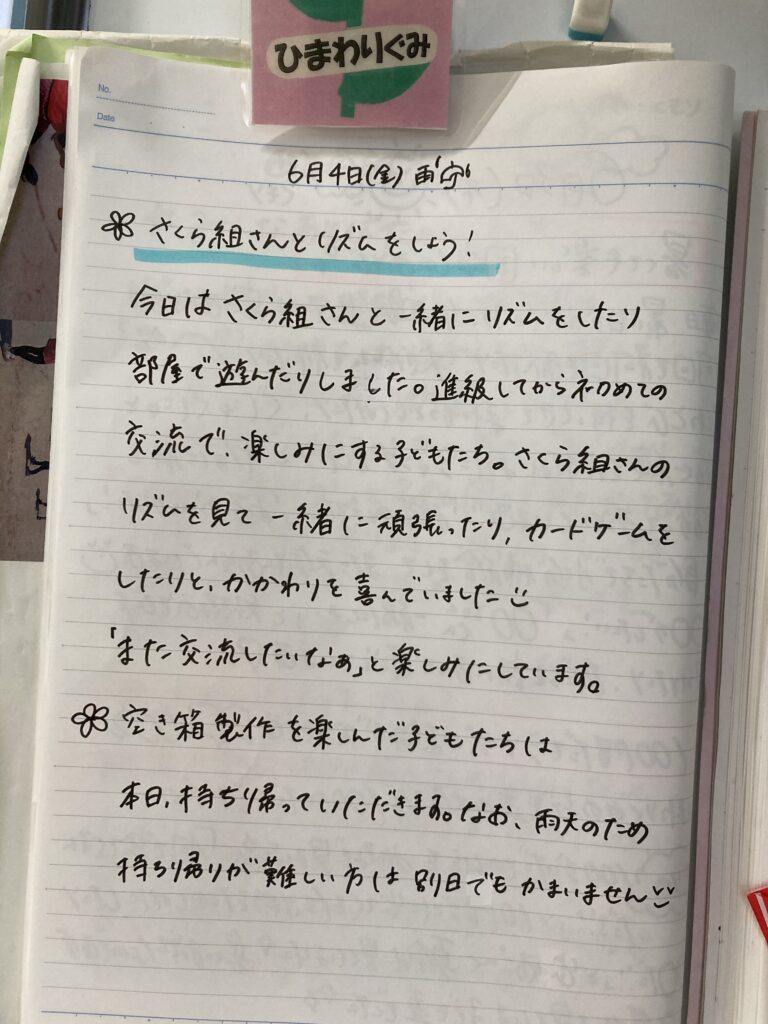 ひまわりぐみ
No.
Date
6月4日(金) 雨
さくら組さんとリズムをしよう!
今日は さくら組さんと一緒にリズムをしたり
部屋で遊んだりしました。進級してから初めての
交流で、楽しみにする子どもたち。さくら組さんの
リズムを見て一緒に頑張ったり,カードゲームを
したりと、かかわりを喜んでいました
「また交流したいなぁ」と楽しみにしています。
空き箱製作を楽しんだ子どもたちは
本日,持ち帰っていただきます。なお、雨天のため
持ち帰りが難しい方は別日でもかまいません